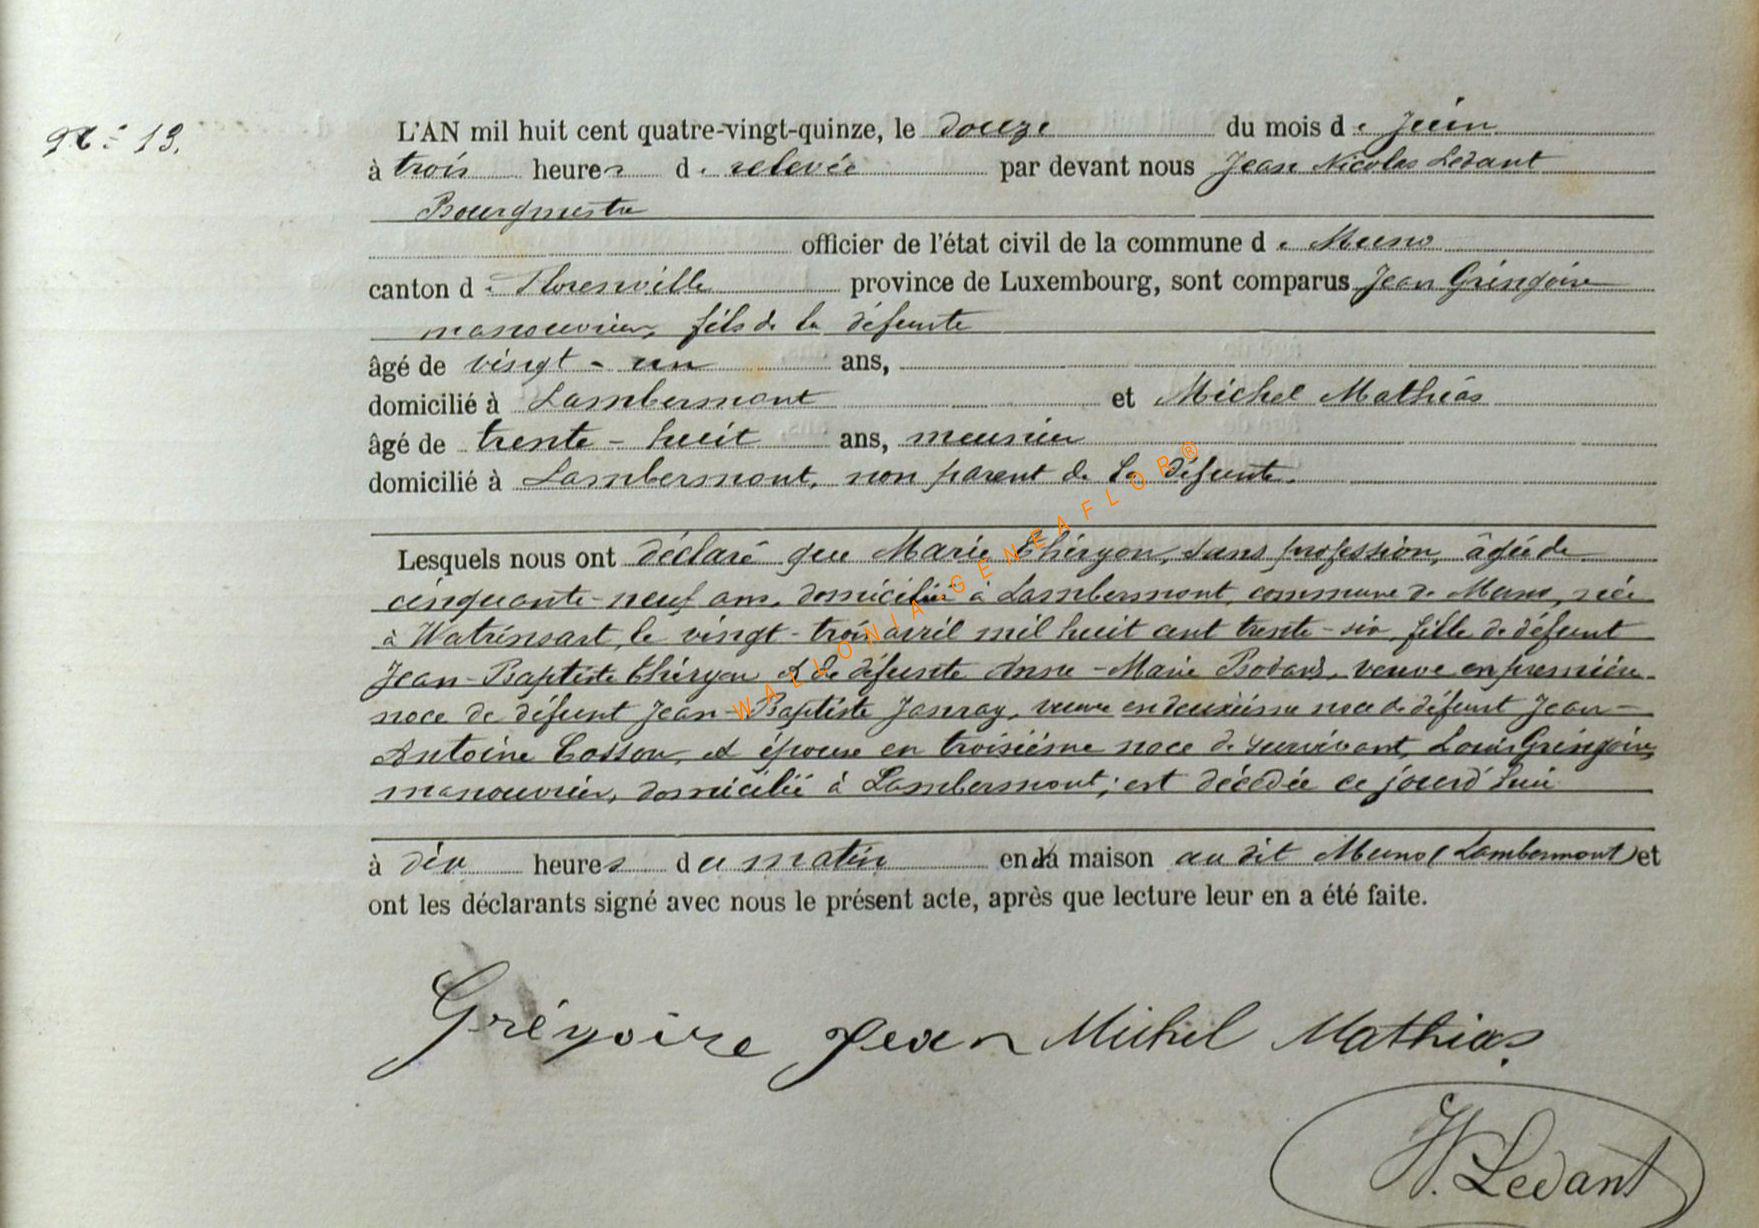 N° 13.
L'AN mil huit cent quatre-vingt-quinze, le douze du mois de Juin
à trois heures de relevée par devant nous Jean Nicolas Ledant
Bourgmestre
officier de l'état civil de la commune de Muno
canton de Florenville province de Luxembourg, sont comparus Jean Gringoire
manouvrier, fils de la défunte
âgé de vingt-un ans,
domicilié à Lambermont et Michel Mathias
âgé de trente-huit ans, meunier
domicilié à Lambermont, non parent de la défunte.
Lesquels nous ont déclaré que Marie Théryon, sans profession, âgée de
cinquante-neuf ans, domiciliée à Lambermont, commune de Muno, née
à Watrinsart, le vingt-trois avril mil huit cent trente-six, fille de défunt
Jean-Baptiste Théryon et de défunte Anne-Marie Bodard, veuve en première
noce de défunt Jean-Baptiste Janray, veuve en deuxième noce de défunt Jean-
Antoine Cosson, et épouse en troisième noce de survivant, Louis Gringoire,
manouvrier, domicilié à Lambermont; est décédée ce jourd'hui
à dix heures du matin en la maison au dit Muno (Lambermont) et
ont les déclarants signé avec nous le présent acte, après que lecture leur en a été faite.
Grégoire Jean Michel Mathias
N. Ledant
WALLONIA-GENEAFLOR®